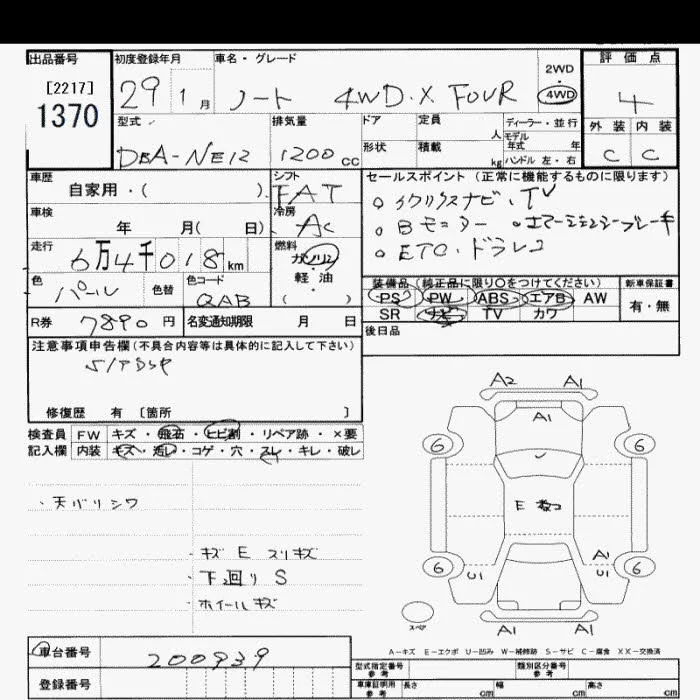 出品番号 初度登録年月 車名・グレード 評価点
[2217]
1370
29 1月 ノート 4WD.X FOUR 2WD・4WD 4
型式 排気量 ドア 定員 人 ディーラー・並行 外装 内装
DBA-NE12 1200cc 形状 積載 kg モデル年式 年 ハンドル 左・右 C C
車歴 シフト セールスポイント(正常に機能するものに限ります)
自家用・( ) FAT
車検 冷房
年 月( 日) AC
。Bモニター 。エマージェンシーブレーキ
走行 燃料
。ETC・ドラレコ
6万4千018km ガソリン・軽油( )
色 色替 色コード 装備品(純正品に限り○をつけてください) 新車保証書
パール QAB PS PW ABS エアB AW 有・無
SR ナビ TV カワ
R券 7890円 名変通知期限 月 日 後日品
注意事項申告欄(不具合内容等は具体的に記入して下さい)
修復歴 有 〔箇所 〕
検査員 FW キズ・飛石・ヒビ割・リペア跡・×要
記入欄 内装 キズ・汚レ・コゲ・穴・スレ・キレ・破レ
A2 A1
A1
6 6
・天バリシワ
E
・キズ E スリキズ
・下回り S
・ホイールキズ
A1
6 U1 U1 6
スペア
A1 A1
A-キズ E-エクボ U-凹み W-補修跡 S-サビ C-腐食 XX-交換済
車台番号 200939
登録番号
型式指定番号 参考 類別区分番号 参考
車庫証明用 参考 長さ cm 幅 cm 高さ cm